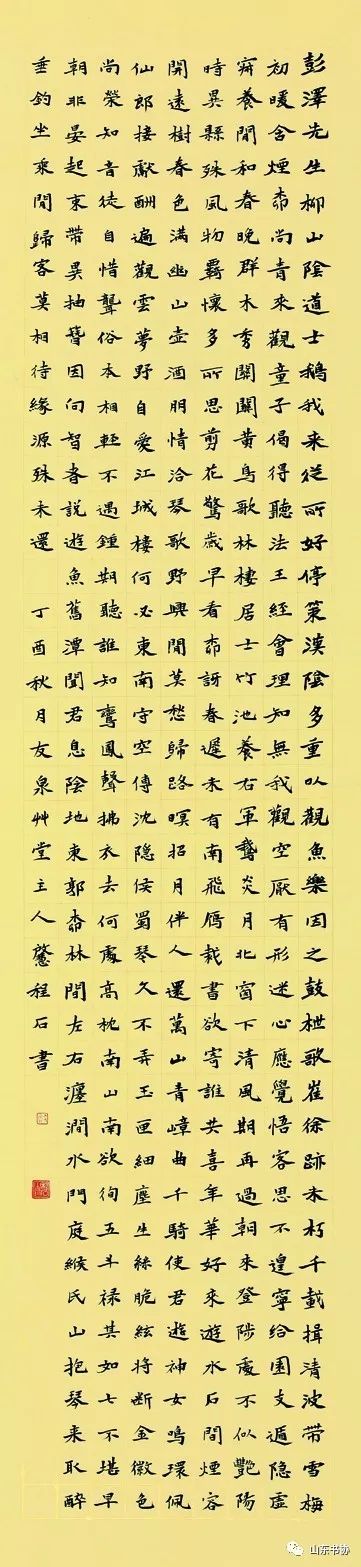 彭澤先生柳山陰道士鵝我来從所好停策漢陰多重以觀魚樂因之鼓枻歌崔徐跡未朽千載揖清波带雪梅
初暖含煙柳尚青來觀童子偈得聽法王經會理知無我觀空厭有形迷心應覺悟客思不遑寧給園支遁隱虚
寂養閒和春晚群木秀關關黄鳥歌林棲居士竹池養右軍鵞炎月北窗下清風期再過朝來登陟處不似艷陽
時異縣殊風物羈懷多所思剪花驚歲早看柳訝春遲未有南飛雁裁書欲寄誰共喜年華好來遊水石間煙容
開遠樹春色滿幽山壺酒朋情洽琴歌野興閒莫愁歸路暝招月伴人還萬山青嶂曲千騎使君遊神女鳴環佩
仙郎接獻酬遍觀雲夢野自愛江城樓何必東南守空傳沈隱侯蜀琴久不弄玉匣細塵生絲脆絃將断金徽色
尚榮知音徒自惜聾俗本相輕不遇鍾期聽誰知鸞鳳聲拂衣去何處高枕南山南欲徇五斗禄其如七不堪早
朝非晏起束帶異抽簪因向智者說遊魚舊潭聞君息陰地東郭柳林間左右瀍澗水門庭緱氏山抱琴来取醉
垂釣坐乘閒歸客莫相待緣源殊未還 丁酉秋月友泉艸堂主人程石書
山东书协